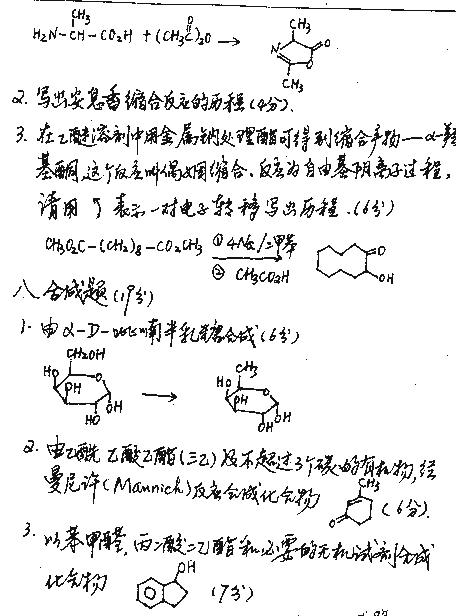 H2N-CH(CH3)-CO2H + (CH3C(=O))2O → N O O CH3 CH3
2. 写出安息香缩合反应的历程(4分).
3. 在乙醚溶剂中用金属钠处理酯可得到缩合产物——α-羟
基酮,这个反应叫偶姻缩合,反应为自由基阴离子过程,
请用 表示一对电子转移写出历程.(6分)
CH3O2C-(CH2)8-CO2CH3 ① 4Na/二甲苯 ② CH3CO2H → O OH
八、合成题(19分)
1. 由α-D-吡喃半乳糖合成(6分)
CH2OH HO O OH HO OH → CH3 HO O OH OH OH
2. 由乙酰乙酸乙酯(三乙)及不超过3个碳的有机物,经
曼尼许(Mannich)反应合成化合物 O CH3 (6分).
3. 以苯甲醛,丙二酸二乙酯和必要的无机试剂合成
化合物 OH (7分)